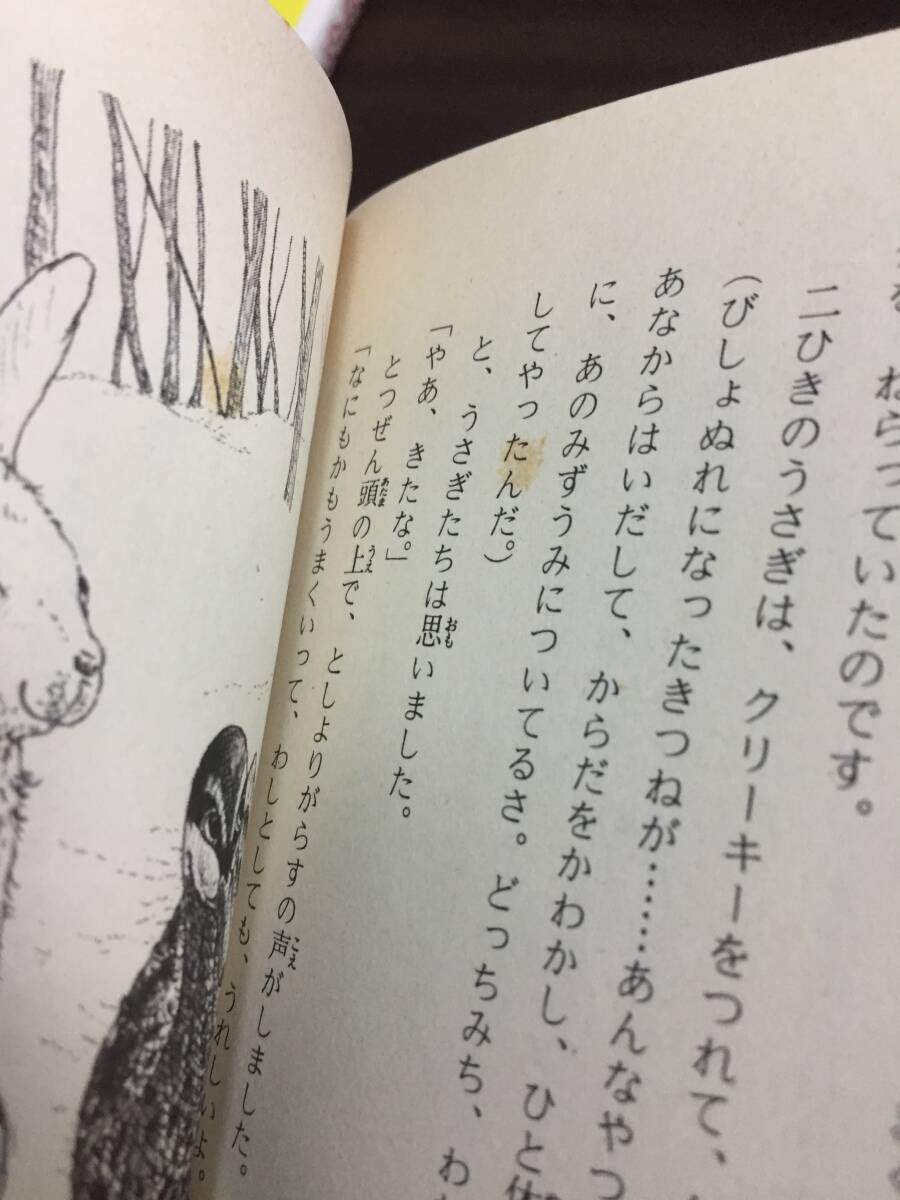 ねらっていたのです。
二ひきのうさぎは、クリーキーをつれて、
(びしょぬれになったきつねが……あんなやつ
あなからはいだして、からだをかわかし、ひと休
に、あのみずうみについてるさ。どっちみち、わ
してやったんだ。)
と、うさぎたちは思いました。
「やあ、きたな。」
とつぜん頭の上で、としよりがらすの声がしました。
「なにもかもうまくいって、わしとしても、うれしいよ。